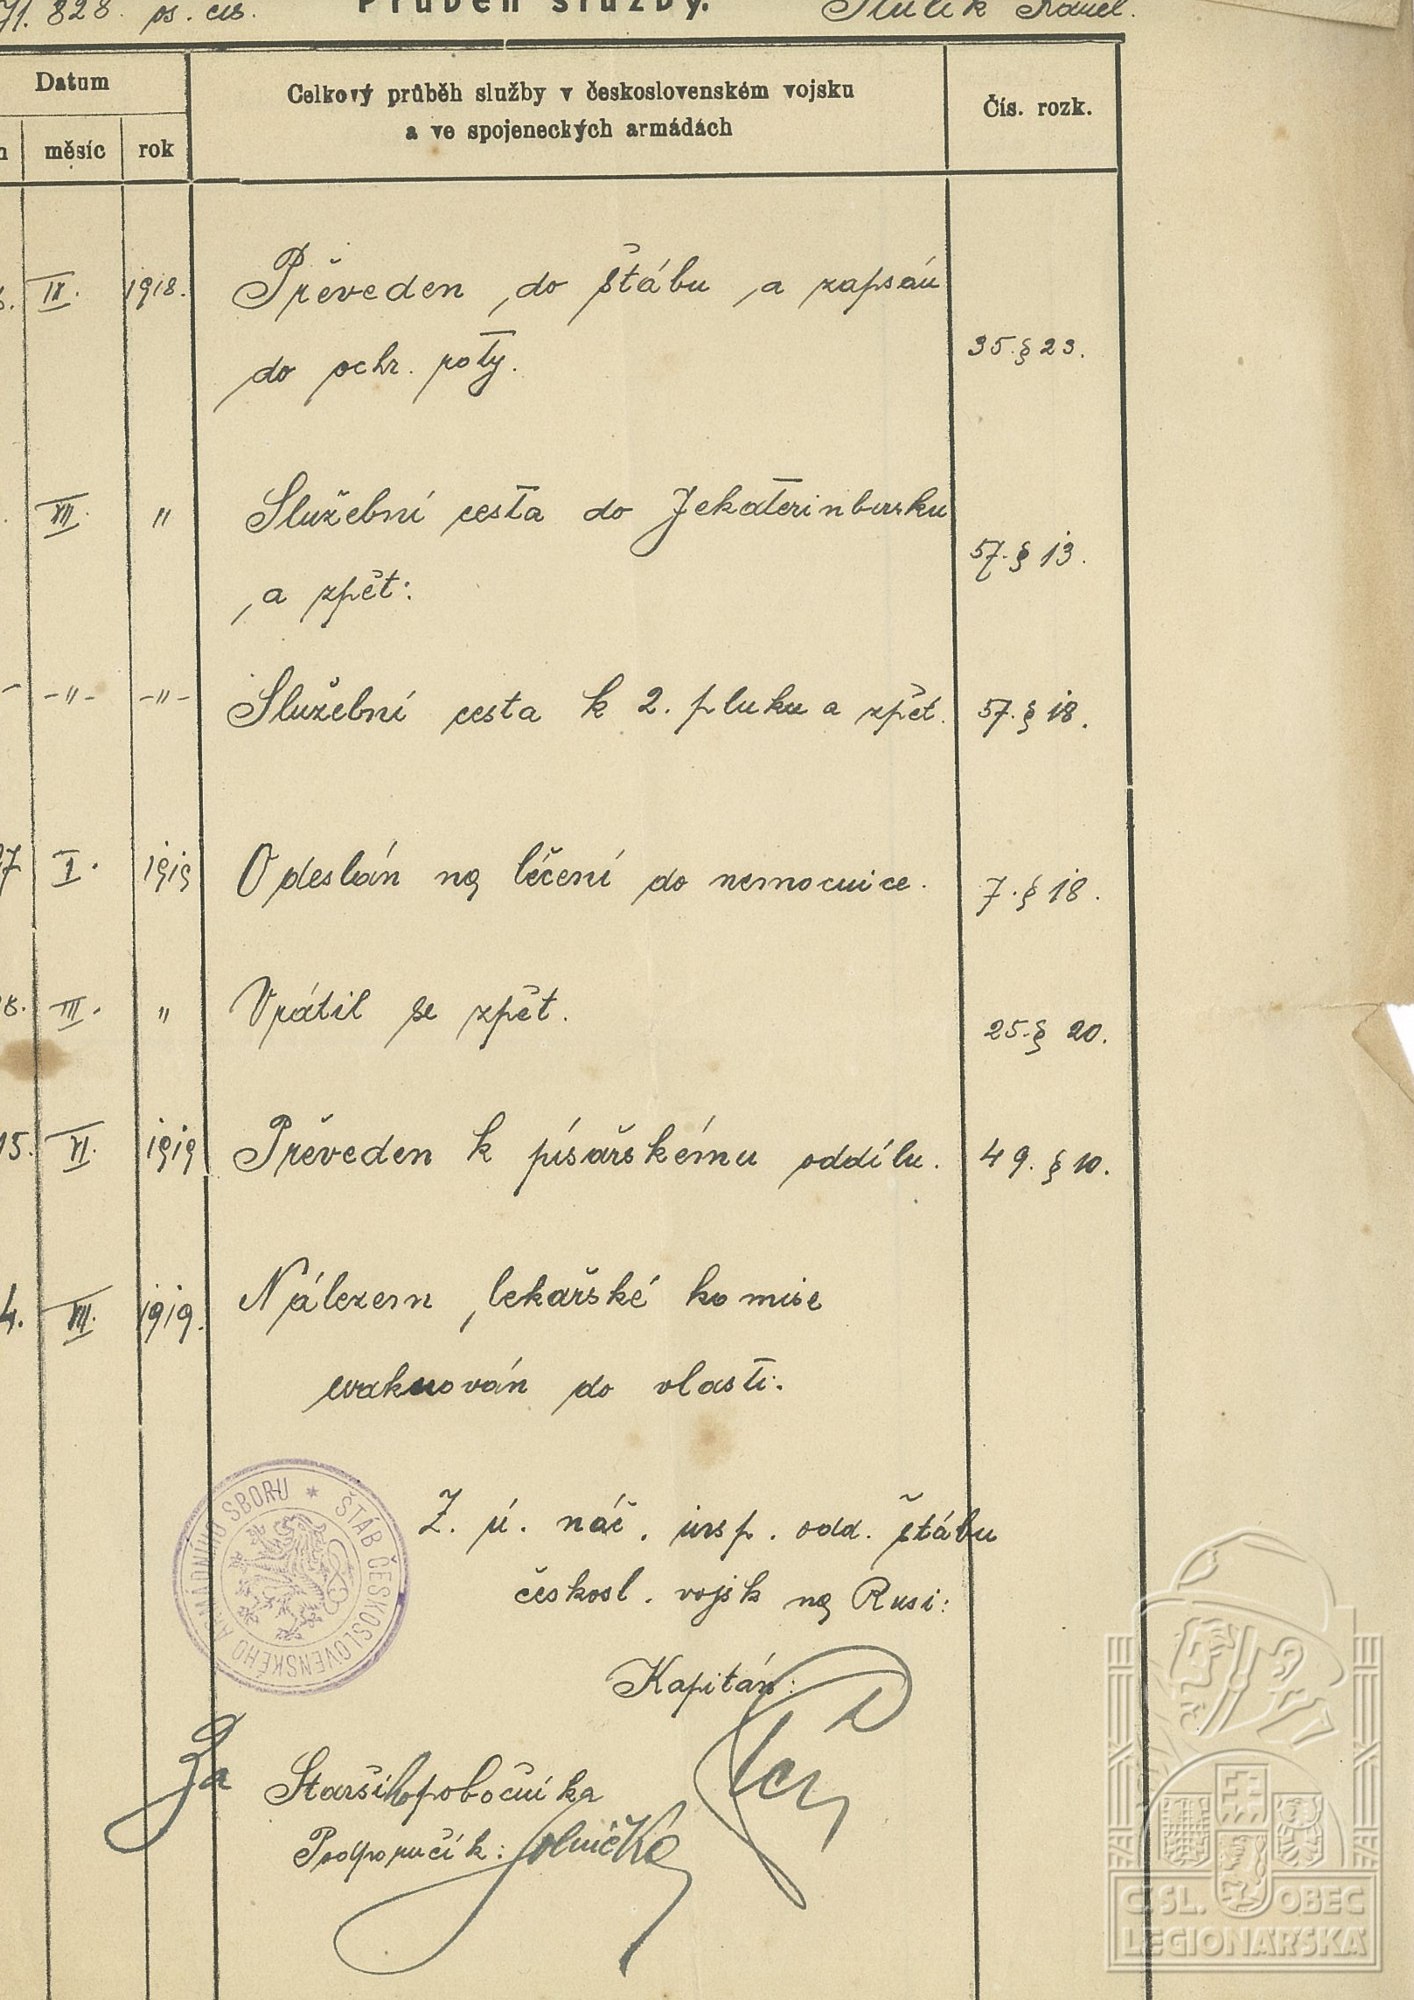 71.828 os. čís. Průběh služby.
Datum
Celkový průběh služby v československém vojsku
a ve spojeneckých armádách
Čís. rozk.
měsíc rok
II. 1918. Převeden do štábu a zapsán
do ochr. roty. 35. § 23.
VII. " Služební cesta do Jekaterinburku
a zpět. 57. § 13.
-"- -"- Služební cesta k 2. pluku a zpět. 57. § 18.
I. 1919 Odeslán na léčení do nemocnice. 7. § 18.
III. " Vrátil se zpět. 25. § 20.
15. VI. 1919 Převeden k písařskému oddílu. 49. § 10.
4. VII. 1919. Nálezem lekařské komise
evakuován do vlasti.
ŠTÁB ČESKOSLOVENSKÉHO ARMÁDNÍHO SBORU
Z. ú. náč. insp. odd. štábu
českosl. vojsk na Rusi:
Kapitán:
Za Staršího pobočníka
Podporučík:
ČSL. OBEC
LEGIONÁŘSKÁ